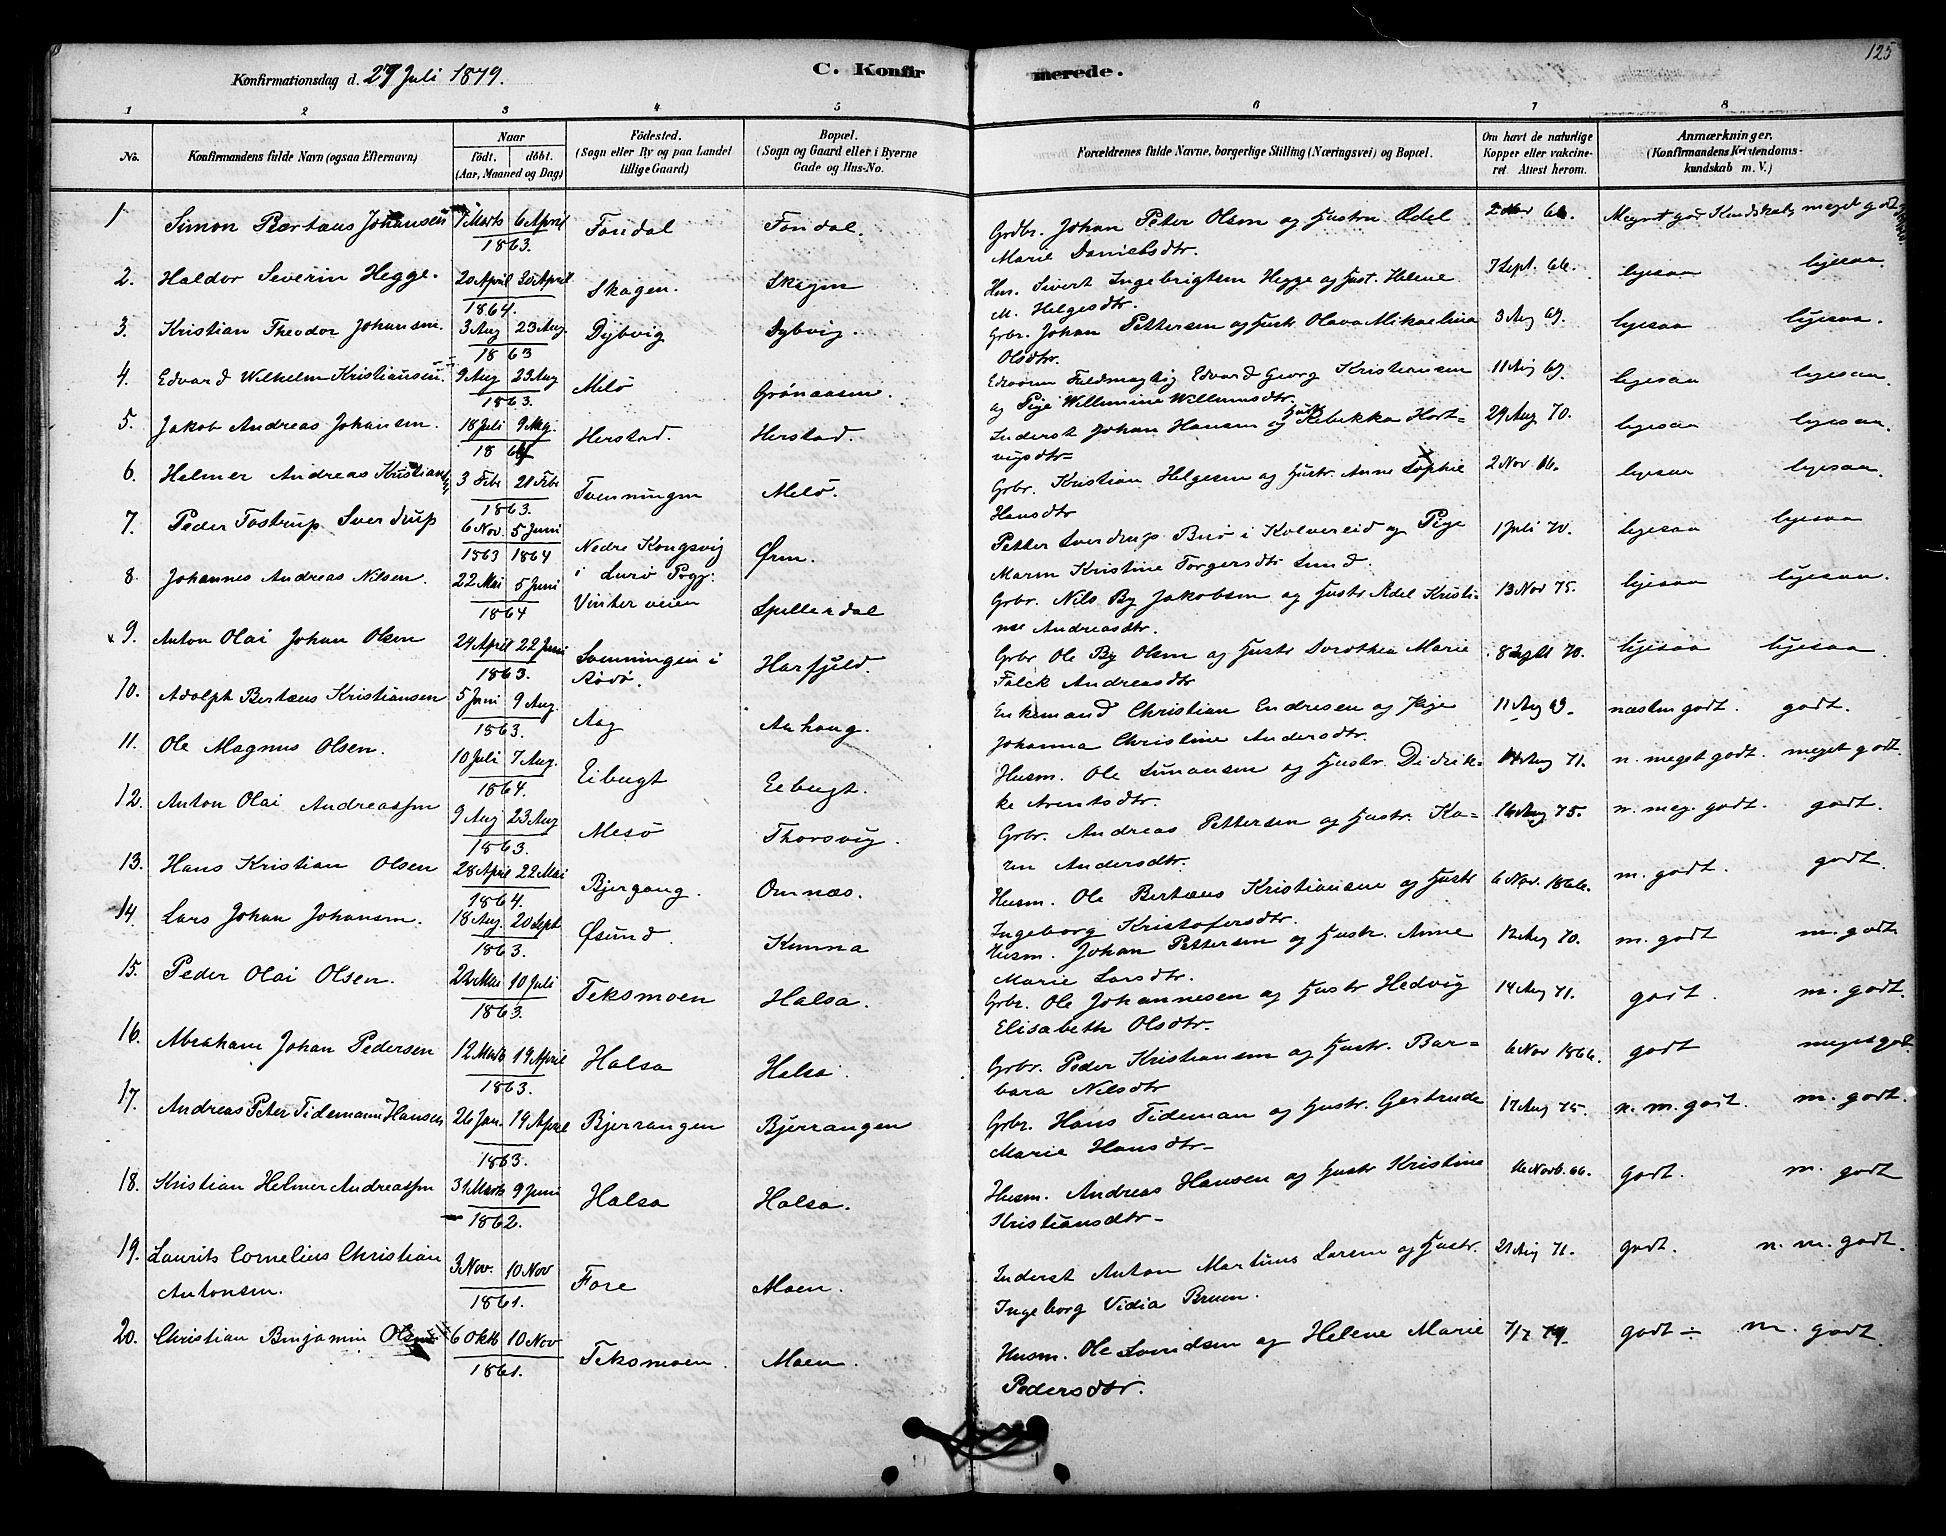 125
Konfirmationsdag d. 27 Juli 1879.
C. Konfirmerede.
1 2 3 4 5 6 7 8
No. Konfirmandens fulde Navn (ogsaa Efternavn) Naar födt. döbt. (Aar, Maaned og Dag) Födested. (Sogn eller By og paa Landet tillige Gaard) Bopæl. (Sogn og Gaard eller i Byerne Gade og Hus-No. Forældrenes fulde Navne, borgerlige Stilling (Næringsvei) og Bopæl. Om havt de naturlige Kopper eller vakcineret. Attest herom. Anmærkninger. (Konfirmandens Kristendomskundskab m. V.)
1 Simon Bertæus Johansen 7 Marts 6 April 1863. Fondal Fondal. Grdbr. Johan Peter Olsen og Hustru Adel
Marie Danielsdtr. Meget god Kundskab meget godt
2. Haldor Severin Hegge. 20 April 30 April 1864. Skagen. Skagen Hus. Sivert Ingebrigtsen Hegge og Hust. Helene
M. Helgesdtr. 7 Sept. 66. ligesaa ligesaa.
3. Kristian Theodor Johansen. 3 Aug 23 Aug. 1863 Dybvig Dybvig. Grbr. Johan Pettersen og Hustr. Olava Mikaelina
Olsdtr. 3 Aug 69. ligesaa ligesaa.
4. Edvard Wilhelm Kristiansen 9 Aug 23 Aug 1863. Melö Grönaasen. Fuldmægtig Edvard Georg Kristiansen
og Pige Willumine Willumsdtr. 11 Aug 69. ligesaa ligesaa.
5. Jakob Andreas Johansen. 18 Juli 9 Aug. Herstad. Herstad. Inderst Johan Hansen og Hustr Rebekka Hart-
vigsdtr= 29 Aug 70. ligesaa ligesaa.
6. Helmer Andreas Kristiansen 3 Febr 21 Febr 1863. Svenningen Melö. Grbr. Kristian Helgesen og Hustr. Anne Sophie
Hansdtr 2 Nov. 66. ligesaa ligesaa.
7. Peder Tostrup Sverdrup 6 Nov. 5 Juni 1863 1864 Nedre Kongsvig
i Lurö Prgj. Ørnen. Petter Sverdrup Buö i Kolvereid og Pige
Maren Kristine Torgersdtr Lund. 1 Juli 70. ligesaa ligesaa
8. Johannes Andreas Nilsen. 22 Mai 5 Juni 1864 Vinterveien Spillerdal Grbr. Nils By Jakobsen og Hustr Adel Kristi-
ne Andreasdtr. 13 Nov 75. ligesaa ligesaa.
9. Anton Olai Johan Olsen 24 April 22 Juni 1863. Svenningen i
Rödö. Harfjeld. Grbr Ole By Olsen og Hustr Dorothea Marie
Falck Andreasdtr 8 Sept 70. ligesaa ligesaa.
10. Adolph Bertæus Kristiansen 5 Juni 9 Aug. 1863. Aag Aahaug. Enkemand Christian Endresen og Pige
Johanna Christine Andersdtr. 11 Aug 69. næsten godt. godt.
11. Ole Magnus Olsen. 10 Juli 7 Aug. 1864. Eibugt Eebugt. Husm. Ole Simonsen og Hustr. Didrik-
ke Arentsdtr. 14 Aug 71. n. meget godt. meget godt.
12. Anton Olai Andreassen 9 Aug 23 Aug 1863. Mesö Thorsvig. Grbr. Andreas Pettersen og Hustr. Ka-
ren Andersdtr. 16 Aug 75. n. meg. godt. godt.
13. Hans Kristian Olsen 28 April 22 Mai 1864. Bjergang. Omnæs. Husm. Ole Bertæus Kristiansen og Hustr
Ingeborg Kristofersdtr. 6 Nov. 1866. m. godt. godt.
14. Lars Johan Johansen. 18 Aug. 20 Sept 1863. Øsund. Kunna Husm. Johan Pettersen og Hustr. Anne
Marie Larsdtr. 12 Aug 70. m. godt m. godt
15. Peder Olai Olsen. 22 Mai 10 Juli 1863. Teksmoen Halsa. Grbr. Ole Johannesen og Hustr Hedvig
Elisabeth Olsdtr. 14 Aug 71. godt. m. godt.
16. Abraham Johan Pedersen 12 Marts 19 April 1863. Halsa Halsa. Grbr. Peder Kristiansen og Hustr. Bar-
bara Nilsdtr 6 Nov 1866. godt meget godt.
17. Andreas Peter Tidemann Hansen 26 Jan. 19 April 1863. Bjerrangen Bjerrangen Grbr. Hans Tideman og Hustr. Gertrude
Marie Hansdtr- 17 Aug 75. n. m. godt. m. godt.
18. Kristian Helmer Andreassen 31 Marts 9 Juni 1862. Halsa Halsa. Husm. Andreas Hansen og Hustr Kristine
Kristiansdtr- 16 Novb. 66. godt. m. godt
19. Laurits Cornelius Christian
Antonsen. 3 Nov. 10 Nov 1861. Fore Moen. Inderst Anton Martinus Larsen og Hustr.
Ingeborg Vidia Bruun. 21 Aug 71. godt. n. m. godt.
20. Christian Benjamin Olsen 6 Oktb 10 Nov 1861. Teksmoen. Moen. Husm. Ole Svendsen og Helene Marie
Pedersdtr. 7/7 79 godt ÷ m. godt